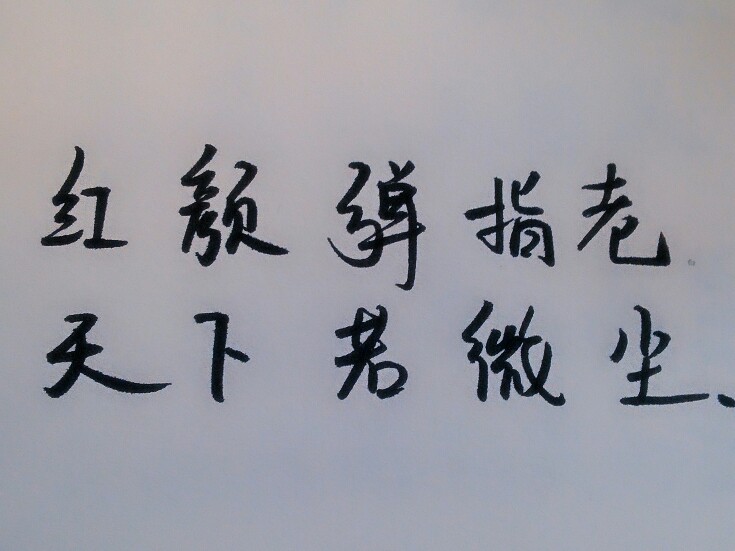 红颜弹指老
天下若微尘、